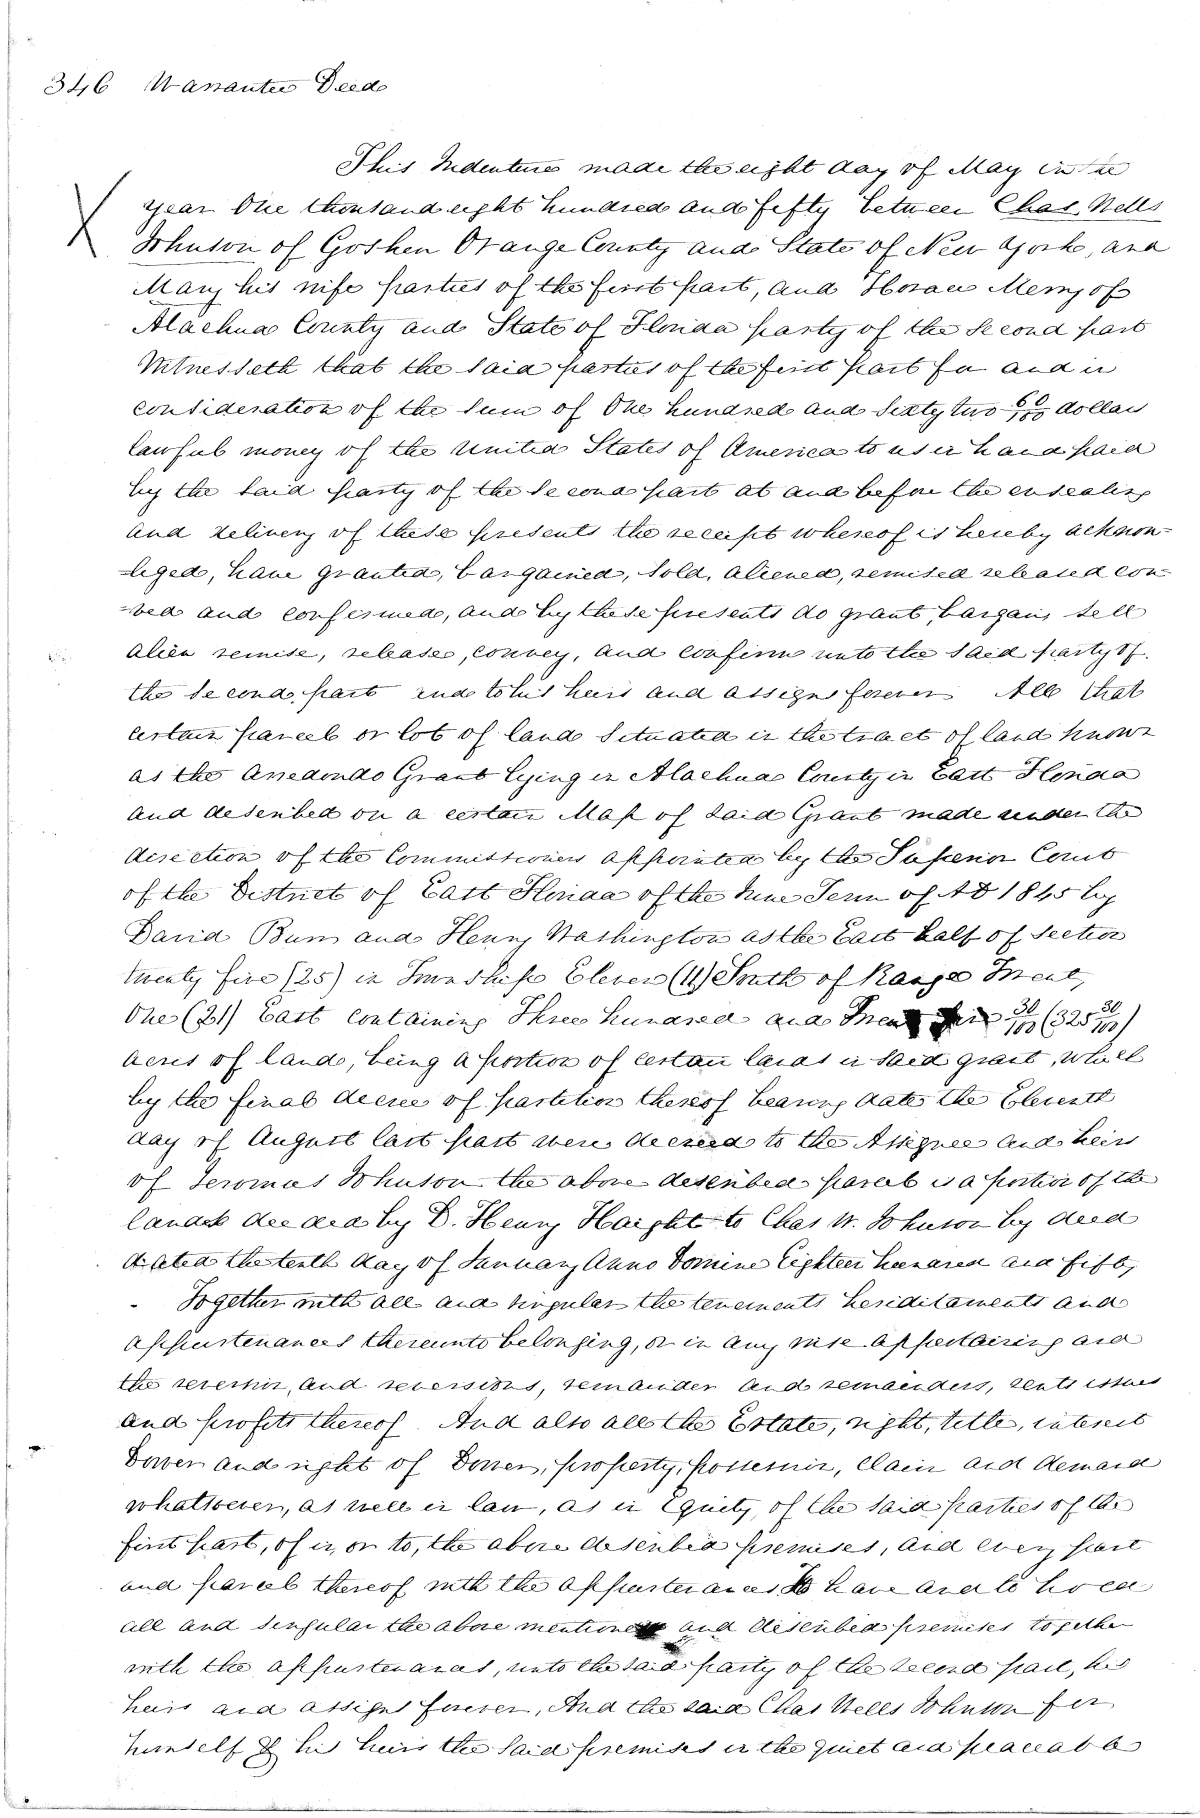 346 Warrantee Deed
This Indenture made the eight day of May in the
year One thousand eight hundred and fifty between Chas. Wells
Johnson of Goshen Orange County and State of New York, and
Mary his wife parties of the first part, and Horace Merry of
Alachua County and State of Florida party of the Second part
Witnesseth that the said parties of the first part for and in
consideration of the sum of One hundred and Sixty two 60/100 dollars
lawful money of the United States of America to us in hand paid
by the said party of the Second part at and before the ensealing
and delivery of these presents the receipt whereof is hereby acknow-
-leged, have granted, bargained, sold, aliened, remised released con-
-ved and confirmed, and by these presents do grant, bargain, sell
alien remise, release, convey, and confirm unto the said party of
the Second part and to his heirs and assigns forever All that
certain parcel or lot of land Situated in the tract of land known
as the Arredondo Grant lying in Alachua County in East Florida
and described on a certain Map of said Grant made under the
direction of the Commissioners appointed by the Superior Court
of the District of East Florida of the June Term of AD 1845 by
David Burr and Henry Washington as the East half of Section
twenty five (25) in Township Eleven (11) South of Range Twenty
One (21) East containing Three hundred and Twenty five 30/100 (325 30/100)
acres of land, being a portion of certain lands in said grant, which
by the final decree of partition thereof bearing date the Eleventh
day of August last past were decreed to the Assignee and heirs
of Jeromus Johnson the above described parcel is a portion of the
lands deeded by D. Henry Haight to Chas W. Johnson by deed
dated the tenth day of January Anno Domine Eighteen hundred and fifty
Together with all and singular the tenements heriditaments and
appurtenances thereunto belonging, or in any wise appertaining and
the reversion, and reversions, remainder and remainders, rents issues
and profits thereof. And also all the Estate, right, title, interest
Dower and right of Dower, property, possession, claim and demand
whatsoever, as well in law, as in Equity, of the said parties of the
first part, of in, or to, the above described premises, and every part
and parcel thereof with the appurtenances To have and to hold
all and singular the above mentioned and described premises together
with the appurtenances, unto the said party of the second part, his
heirs and assigns forever, And the said Chas Wells Johnson for
himself & his heirs the said premises in the quiet and peaceable